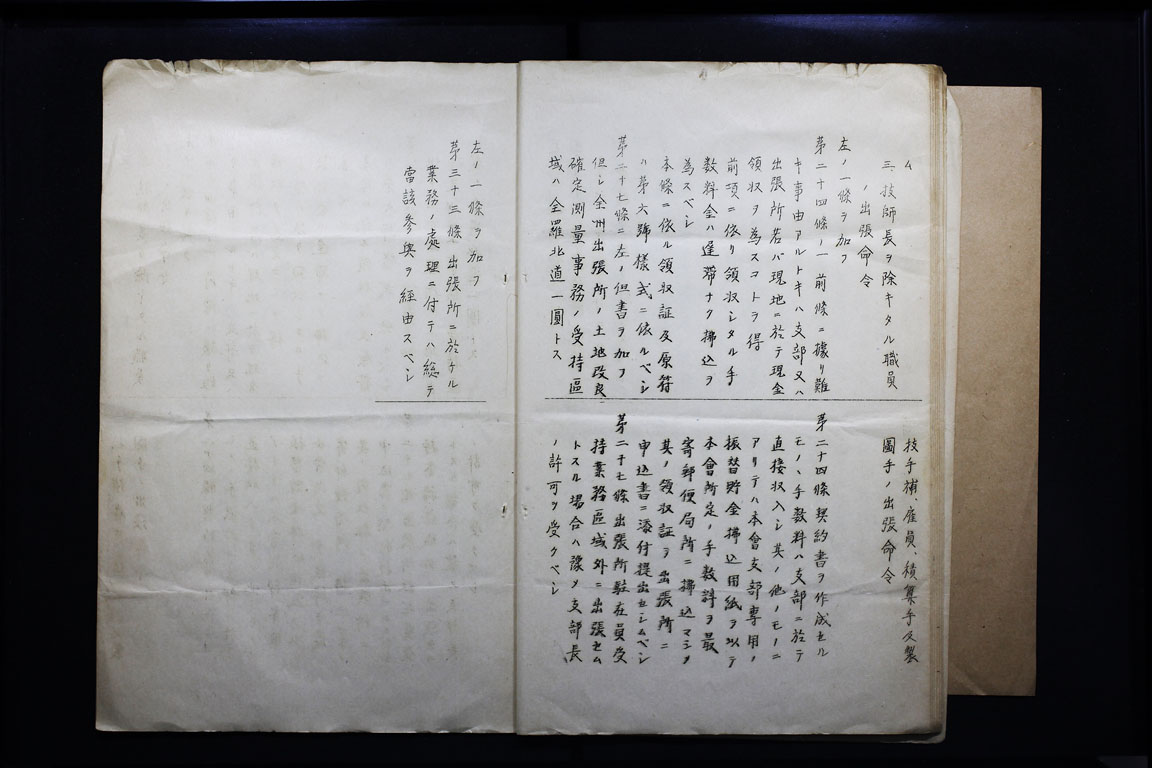 ム
三、技師長ヲ除キタル職員
ノ出張命令
左ノ一條ヲ加フ
第二十四條ノ一 前條ニ據リ難
キ事由アルトキハ支部又ハ
出張所若バ現地ニ於テ現金
領収ヲ為スコトヲ得
前項ニ依リ領収シタル手
数料金ハ遅滞ナク拂込ヲ
為スベシ
本條ニ依ル領収証及原符
ハ第六號様式ニ依ルベシ
第二十七條ニ左ノ但書ヲ加フ
但シ全州出張所ノ土地改良
確定測量事務ノ受持區
域ハ全羅北道一圓トス
技手補、雇員、積算手及製
圖手ノ出張命令
第二十四條契約書ヲ作成セル
モノヽ手数料ハ支部ニ於テ
直接収入シ其ノ他ノモノニ
アリテハ本會支部専用ノ
振替貯金拂込用紙ヲ以テ
本會所定ノ手数料ヲ最
寄郵便局所ニ拂込マシメ
其ノ領収証ヲ出張所ニ
申込書ニ添付提出セシムベシ
第二十七條出張所駐在員受
持業務區域外ニ出張セム
トスル場合ハ豫メ支部長
ノ許可ヲ受クベシ
左ノ一條ヲ加フ
第三十三條 出張所ニ於ケル
業務ノ處理ニ付テハ総テ
當該参與ヲ經由スベシ